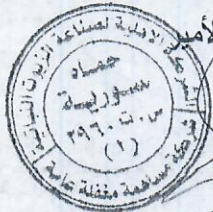 الأمير
الشركة الأهلية لصناعة الزيوت النباتية
حماه
سورية
س.ت ٣٩٦٠
(١)
شركة مساهمة مغفلة عامة